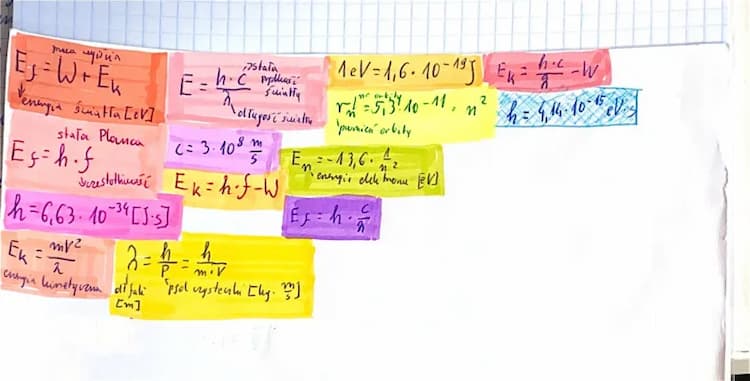 praca wyjścia
E_f = W + E_k
energia światła [eV]
stała prędkość światła
E = h·c/λ
długość światła
1eV = 1,6·10^-19 J
E_k = h·c/λ - W
nr orbity
r_n = 5,3·10^-11 · n^2
promień orbity
h = 4,14·10^-15 eV·s
stała Plancka
E_f = h·f
częstotliwość
c = 3·10^8 m/s
E_n = -13,6 · 1/n^2
energia elektronu [eV]
E_k = h·f - W
h = 6,63·10^-34 [J·s]
E_f = h · c/λ
E_k = mV^2/2
energia kinetyczna
λ = h/p = h/m·V
dł fali [m]
pęd cząsteczki [kg· m/s]